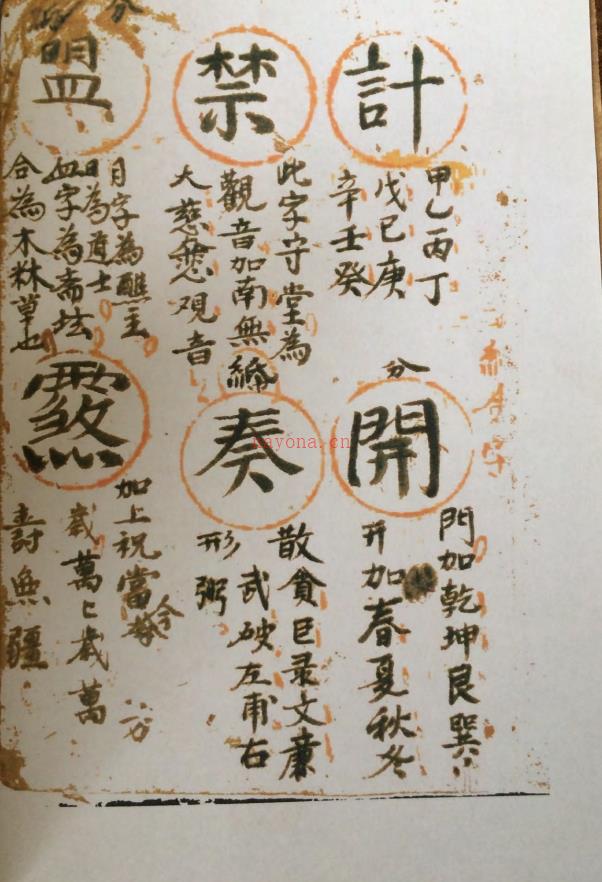 計
甲乙丙丁
戊己庚
辛壬癸
禁
此字守堂為
觀音加南無
大慈悲观音
盟
月字為醮主
日為道士
血字為斋坛
合為木林草也
分
開
門加乾坤艮巽
开加春夏秋冬
奏
散貪巨录文廉
武破左甫右
形
加上祝當今
歲萬匕歲萬
壽無疆
nayona.cn